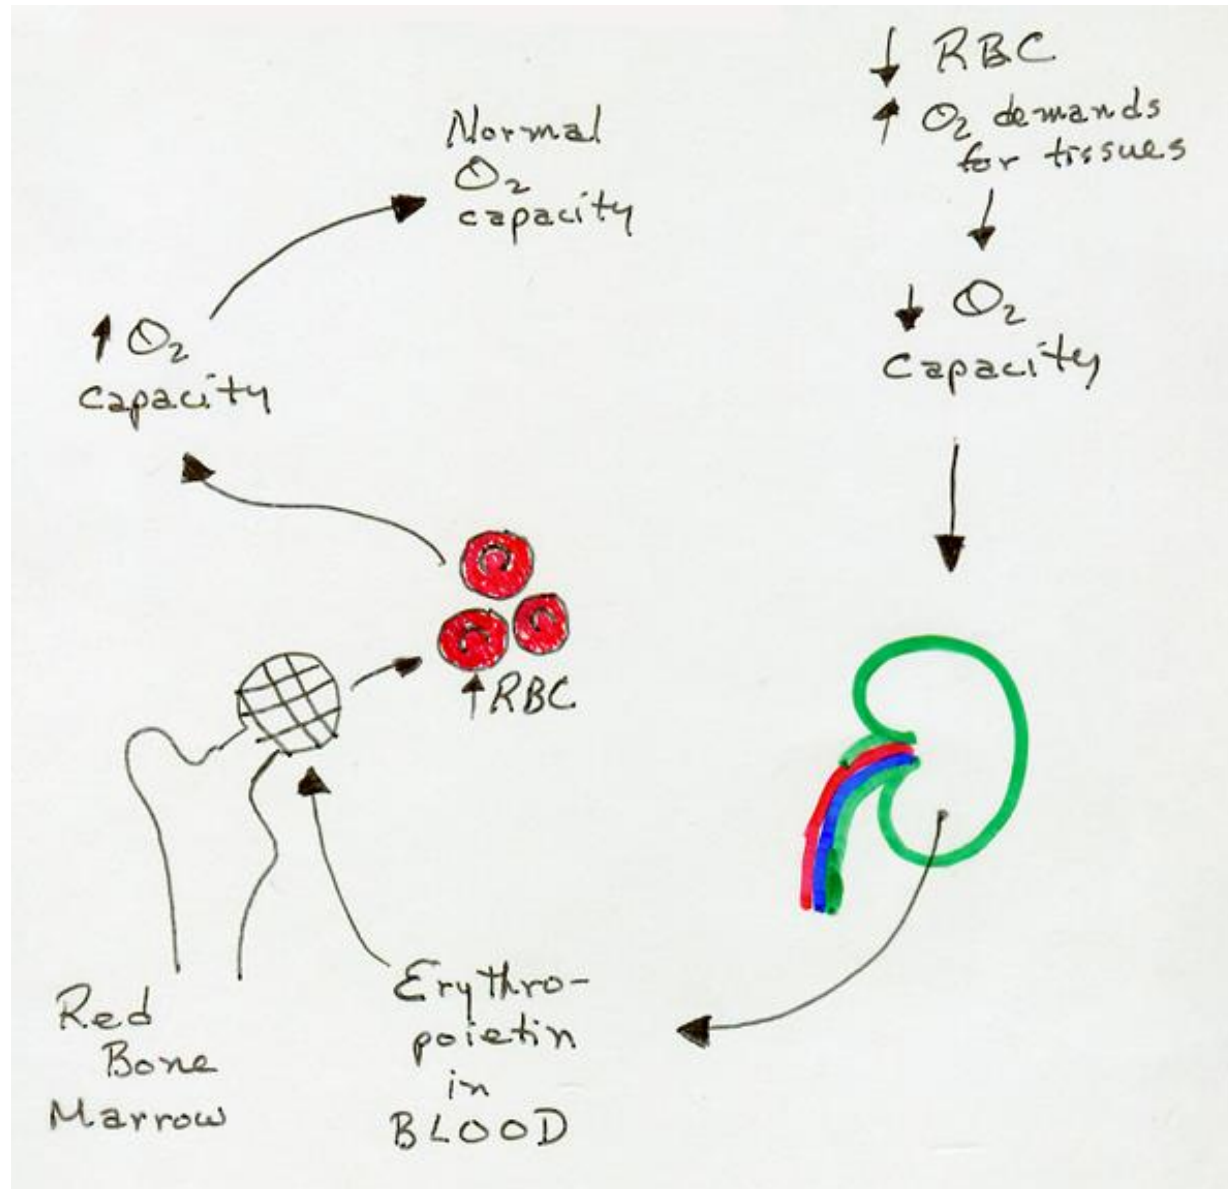 ↓ RBC
↑ O₂ demands
for tissues
↓ O₂
Capacity
Erythro-
poietin
in
BLOOD
Red
Bone
Marrow
↑ RBC
↑ O₂
capacity
Normal
O₂
capacity